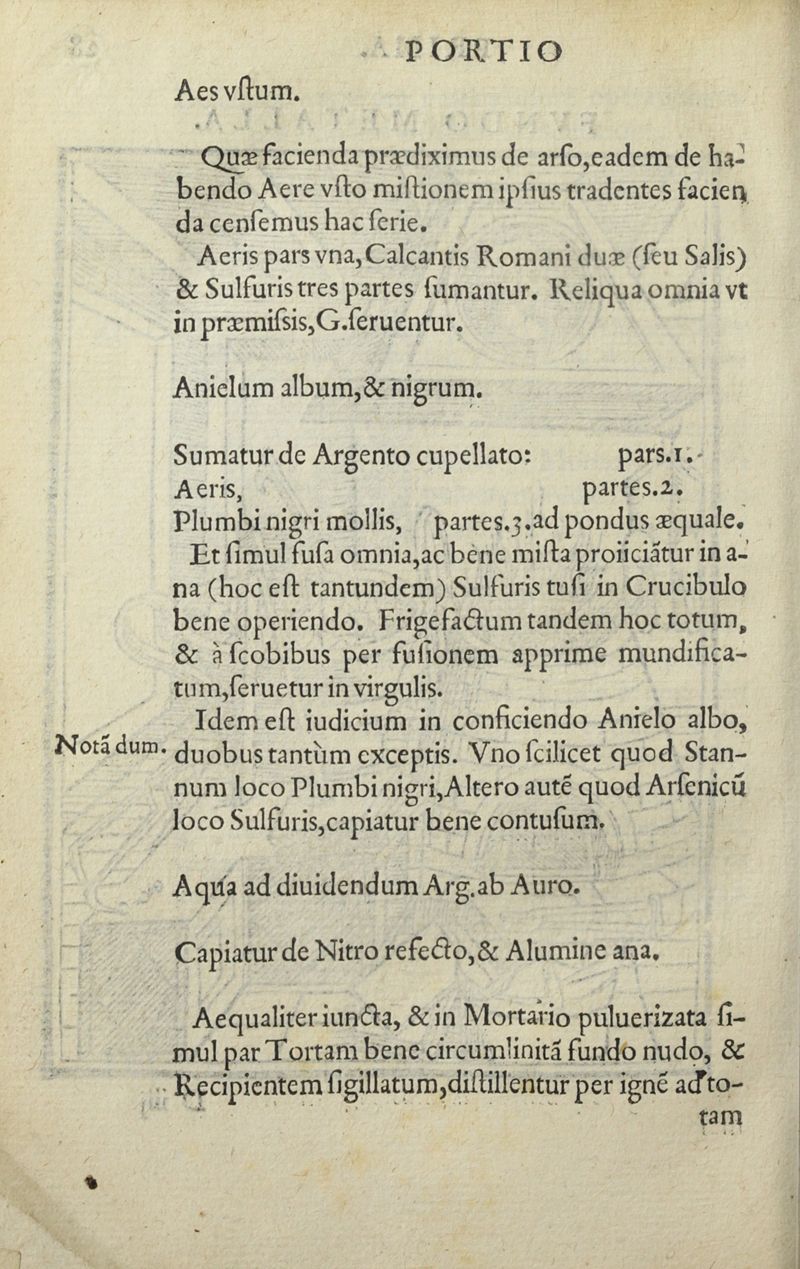 PORTIO
Aes vſtum.
Quæ facienda prædiximus de arſo,eadem de ha-
bendo Aere vſto miſtionem ipſius tradentes facien
da cenſemus hac ſerie.
Aeris pars vna,Calcantis Romani duæ (ſeu Salis)
& Sulfuris tres partes ſumantur. Reliqua omnia vt
in præmiſsis,G.ſeruentur.
Anielum album,& nigrum.
Sumatur de Argento cupellato: pars.1.
Aeris, partes.2.
Plumbi nigri mollis, partes.3.ad pondus æquale.
Et ſimul fuſa omnia,ac bene miſta proiiciãtur in a-
na (hoc eſt tantundem) Sulfuris tuſi in Crucibulo
bene operiendo. Frigefactum tandem hoc totum,
& à ſcobibus per fuſionem apprime mundifica-
tum,ſeruetur in virgulis.
Idem eſt iudicium in conficiendo Anielo albo,
Notãdum. duobus tantùm exceptis. Vno ſcilicet quod Stan-
num loco Plumbi nigri,Altero autẽ quod Arſenicũ
loco Sulfuris,capiatur bene contuſum.
Aqua ad diuidendum Arg.ab Auro.
Capiatur de Nitro refecto,& Alumine ana.
Aequaliter iuncta, & in Mortario puluerizata ſi-
mul par Tortam bene circumlinitã fundo nudo, &
Recipientem ſigillatum,diſtillentur per ignẽ ad to-
tam